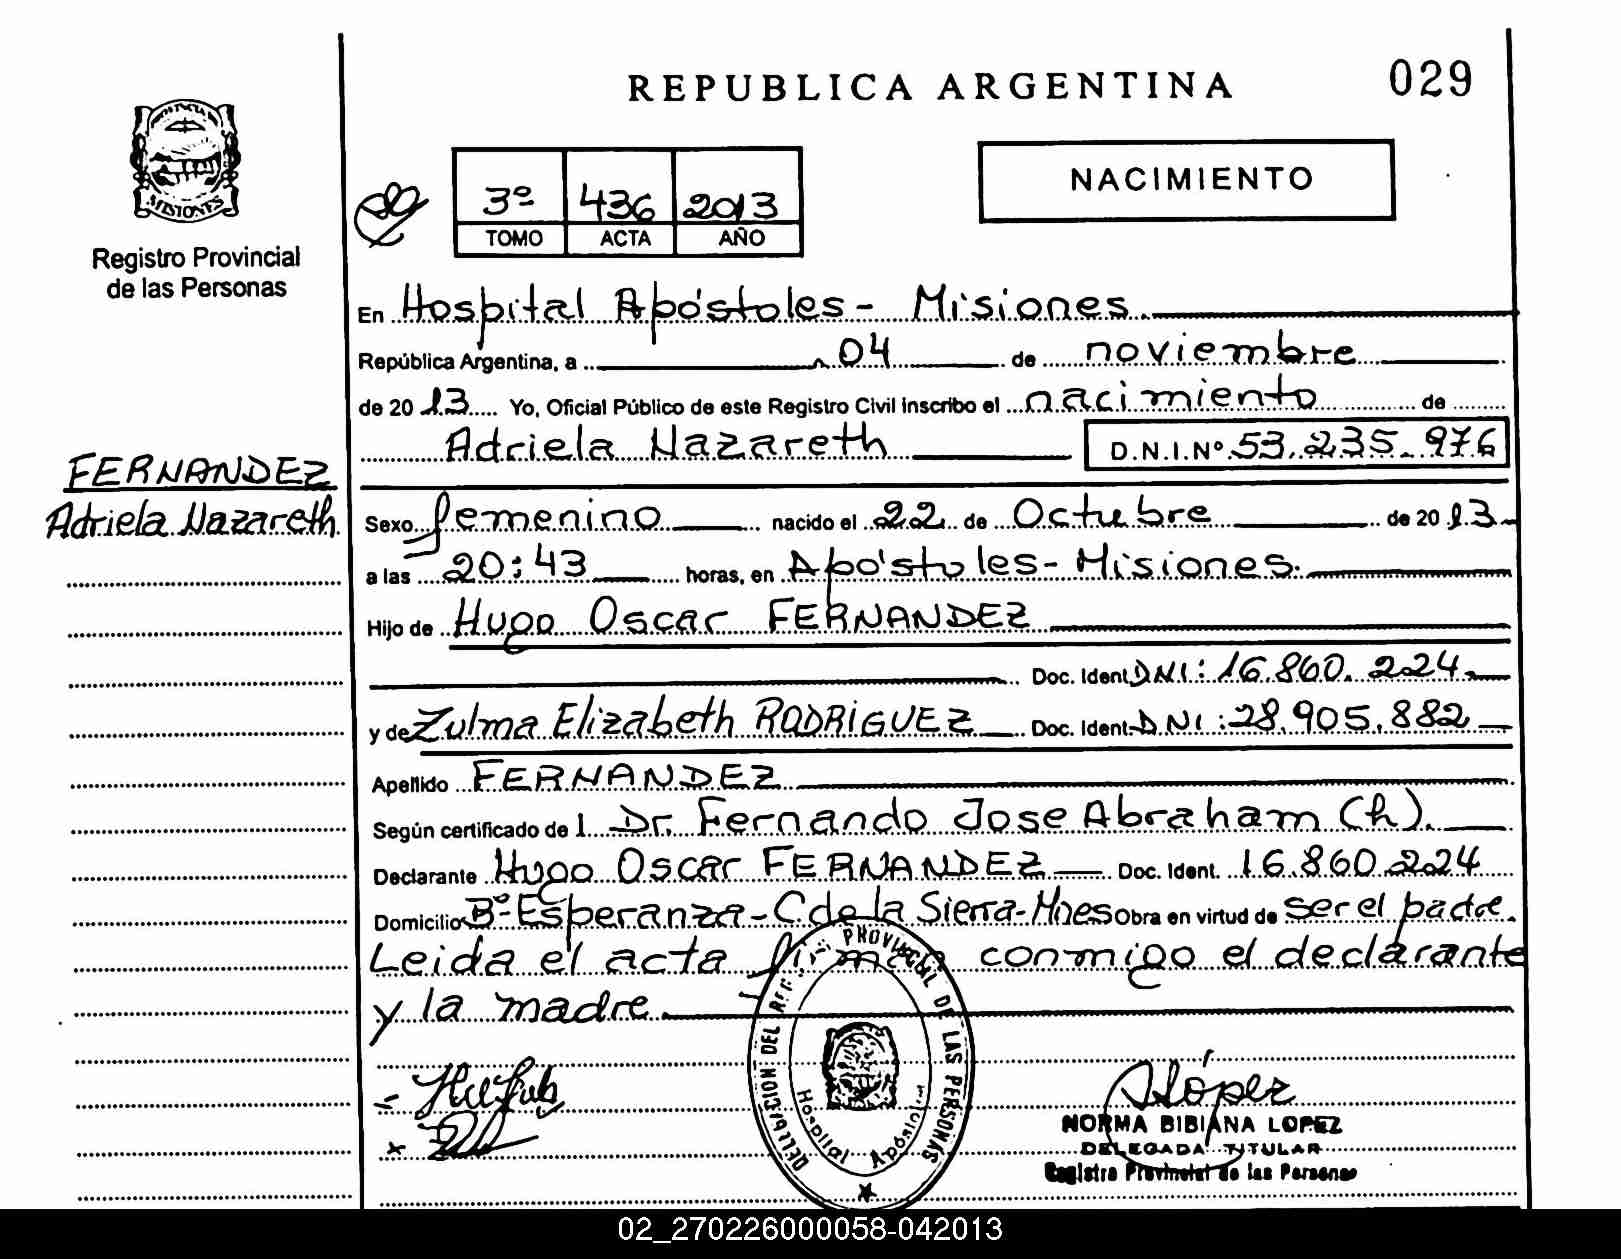 REPUBLICA ARGENTINA
029
MISIONES
Registro Provincial
de las Personas
3º 436 2013
TOMO ACTA AÑO
NACIMIENTO
En Hospital Apóstoles - Misiones.
República Argentina, a 04 de noviembre
de 2013 Yo, Oficial Público de este Registro Civil inscribo el nacimiento de
Adriela Nazareth D.N.I.Nº 53.235.976
FERNANDEZ
Adriela Nazareth.
Sexo femenino nacido el 22 de Octubre de 2013
a las 20:43 horas, en Apóstoles - Misiones.
Hijo de Hugo Oscar FERNANDEZ
Doc. Ident DNI: 16.860.224.
y de Zulma Elizabeth RODRIGUEZ Doc. Ident. DNI: 28.905.882
Apellido FERNANDEZ
Según certificado de l Dr. Fernando Jose Abraham (h).
Declarante Hugo Oscar FERNANDEZ Doc. Ident. 16.860.224
Domicilio Bº Esperanza - C. de la Sierra - Mnes Obra en virtud de ser el padre.
Leida el acta firman conmigo el declarante
y la madre
DELEGACION DEL REG. PROVINCIAL DE LAS PERSONAS
Hospital Apóstoles
López
NORMA BIBIANA LOPEZ
DELEGADA TITULAR
Registro Provincial de las Personas
02_270226000058-042013